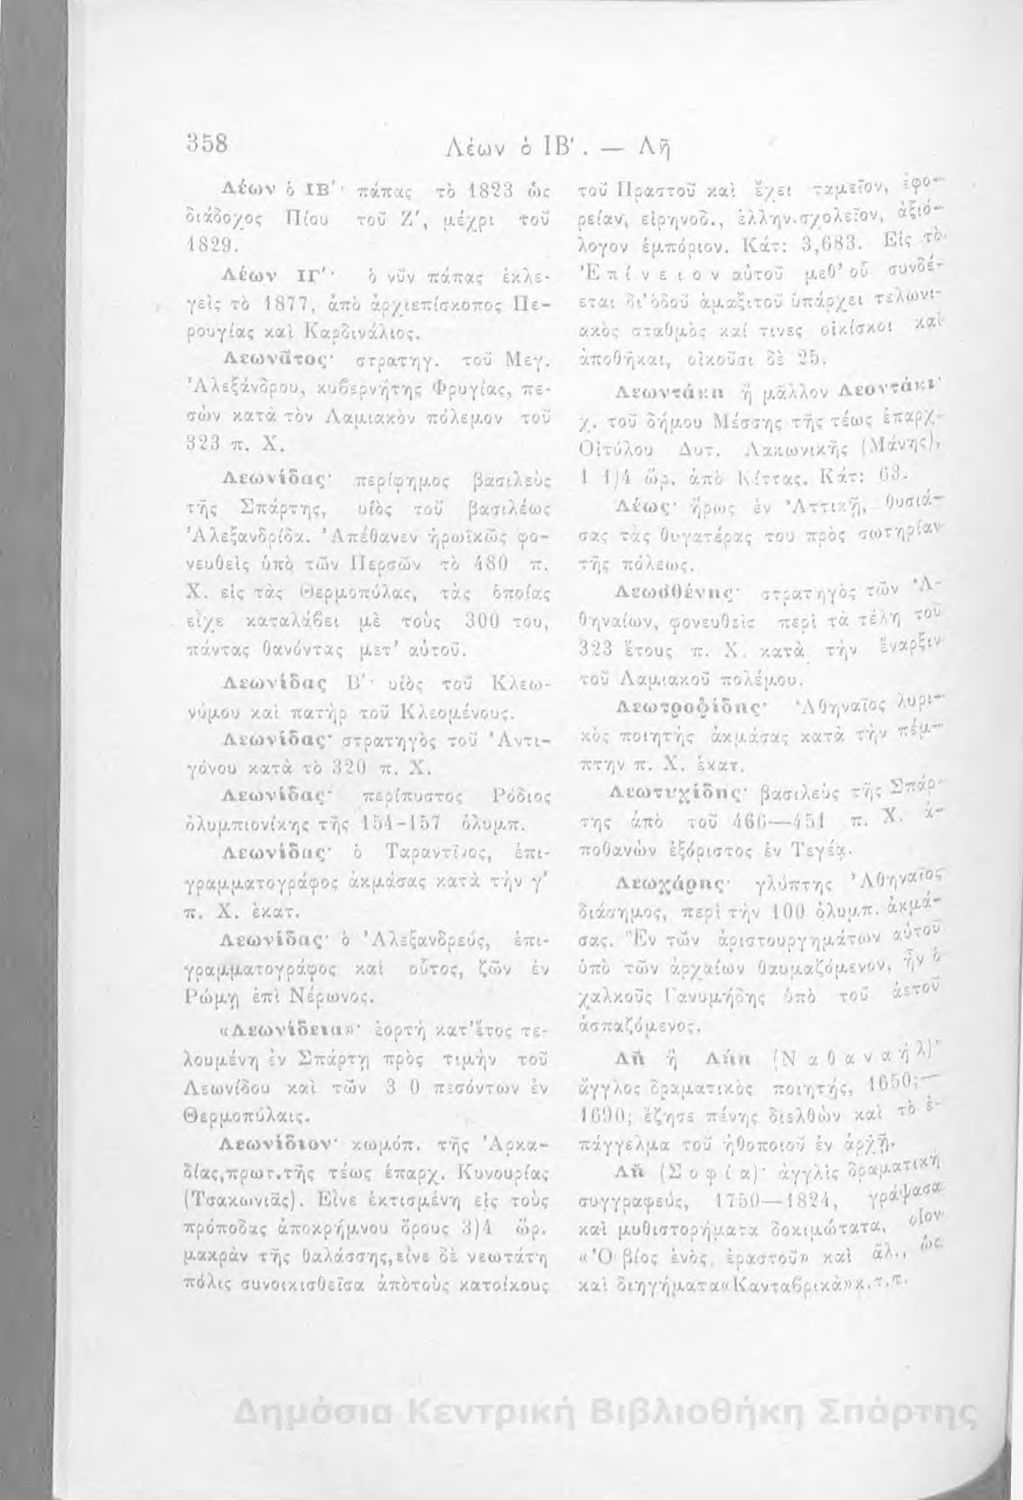 358
Λέων ὁ ΙΒ'. — Λῆ
Λέων ὁ ΙΒ'· πάπας τὸ 1823 ὡς
διάδοχος Πίου τοῦ Ζ', μέχρι τοῦ
1829.
Λέων ΙΓ'· ὁ νῦν πάπας ἐκλε-
γεὶς τὸ 1877, ἀπὸ ἀρχιεπίσκοπος Πε-
ρουγίας καὶ Καρδινάλιος.
Λεωνᾶτος· στρατηγ. τοῦ Μεγ.
Ἀλεξάνδρου, κυβερνήτης Φρυγίας, πε-
σὼν κατὰ τὸν Λαμιακὸν πόλεμον τοῦ
323 π. Χ.
Λεωνίδας· περίφημος βασιλεὺς
τῆς Σπάρτης, υἱὸς τοῦ βασιλέως
Ἀλεξανδρίδα. Ἀπέθανεν ἡρωϊκῶς φο-
νευθεὶς ὑπὸ τῶν Περσῶν τὸ 480 π.
Χ. εἰς τὰς Θερμοπύλας, τὰς ὁποίας
εἶχε καταλάβει μὲ τοὺς 300 του,
πάντας θανόντας μετ' αὐτοῦ.
Λεωνίδας Β'· υἱὸς τοῦ Κλεω-
νύμου καὶ πατὴρ τοῦ Κλεομένους.
Λεωνίδας· στρατηγὸς τοῦ Ἀντι-
γόνου κατὰ τὸ 320 π. Χ.
Λεωνίδας· περίπυστος Ῥόδιος
ὀλυμπιονίκης τῆς 154-157 ὀλυμπ.
Λεωνίδας· ὁ Ταραντῖνος, ἐπι-
γραμματογράφος ἀκμάσας κατὰ τὴν γ'
π. Χ. ἑκατ.
Λεωνίδας· ὁ Ἀλεξανδρεύς, ἐπι-
γραμματογράφος καὶ οὗτος, ζῶν ἐν
Ῥώμῃ ἐπὶ Νέρωνος.
«Λεωνίδεια»· ἑορτὴ κατ' ἔτος τε-
λουμένη ἐν Σπάρτῃ πρὸς τιμὴν τοῦ
Λεωνίδου καὶ τῶν 3 0 πεσόντων ἐν
Θερμοπύλαις.
Λεωνίδιον· κωμόπ. τῆς Ἀρκα-
δίας,πρωτ.τῆς τέως ἐπαρχ. Κυνουρίας
(Τσακωνιᾶς). Εἶνε ἐκτισμένη εἰς τοὺς
πρόποδας ἀποκρήμνου ὄρους 3)4 ὡρ.
μακρὰν τῆς θαλάσσης,εἶνε δὲ νεωτάτη
πόλις συνοικισθεῖσα ἀπὸ τοὺς κατοίκους
τοῦ Πραστοῦ καὶ ἔχει ταμεῖον, ἐφο-
ρείαν, εἰρηνοδ., ἑλλην.σχολεῖον, ἀξιό-
λογον ἐμπόριον. Κάτ: 3,683. Εἰς τὸ
Ἐπίνειον αὐτοῦ μεθ' οὗ συνδέ-
εται δι' ὁδοῦ ἁμαξιτοῦ ὑπάρχει τελωνι-
ακὸς σταθμὸς καί τινες οἰκίσκοι καὶ
ἀποθῆκαι, οἰκοῦσι δὲ 25.
Λεωντάκη ἢ μᾶλλον Λεοντάκι·
χ. τοῦ δήμου Μέσσης τῆς τέως ἐπαρχ.
Οἰτύλου Δυτ. Λακωνικῆς (Μάνης),
1 1)4 ὡρ. ἀπὸ Κίττας. Κάτ: 63.
Λέως· ἥρως ἐν Ἀττικῇ, θυσιά-
σας τὰς θυγατέρας του πρὸς σωτηρίαν
τῆς πόλεως.
Λεωσθένης· στρατηγὸς τῶν Ἀ-
θηναίων, φονευθεὶς περὶ τὰ τέλη τοῦ
323 ἔτους π. Χ. κατὰ τὴν ἔναρξιν
τοῦ Λαμιακοῦ πολέμου.
Λεωτροφίδης· Ἀθηναῖος λυρι-
κὸς ποιητὴς ἀκμάσας κατὰ τὴν πέμ-
πτην π. Χ. ἑκατ.
Λεωτυχίδης· βασιλεὺς τῆς Σπάρ-
της ἀπὸ τοῦ 466—451 π. Χ. ἀ-
ποθανὼν ἐξόριστος ἐν Τεγέᾳ.
Λεωχάρης· γλύπτης Ἀθηναῖος
διάσημος, περὶ τὴν 100 ὀλυμπ. ἀκμά-
σας. Ἓν τῶν ἀριστουργημάτων αὐτοῦ
ὑπὸ τῶν ἀρχαίων θαυμαζόμενον, ἦν ὁ
χαλκοῦς Γανυμήδης ὑπὸ τοῦ ἀετοῦ
ἀσπαζόμενος.
Λῆ ἢ Λήη (Ναθαναήλ)·
ἄγγλος δραματικὸς ποιητής, 1650;—
1690; ἔζησε πένης διελθὼν καὶ τὸ ἐ-
πάγγελμα τοῦ ἠθοποιοῦ ἐν ἀρχῇ.
Λῆ (Σοφία)· ἀγγλὶς δραματικὴ
συγγραφεύς, 1750—1824, γράψασα
καὶ μυθιστορήματα δοκιμώτατα, οἷον
«Ὁ βίος ἑνὸς ἐραστοῦ» καὶ ἄλ., ὡς
καὶ διηγήματα«Κανταβρικὰ»κ.τ.τ.
Δημόσια Κεντρική Βιβλιοθήκη Σπάρτης